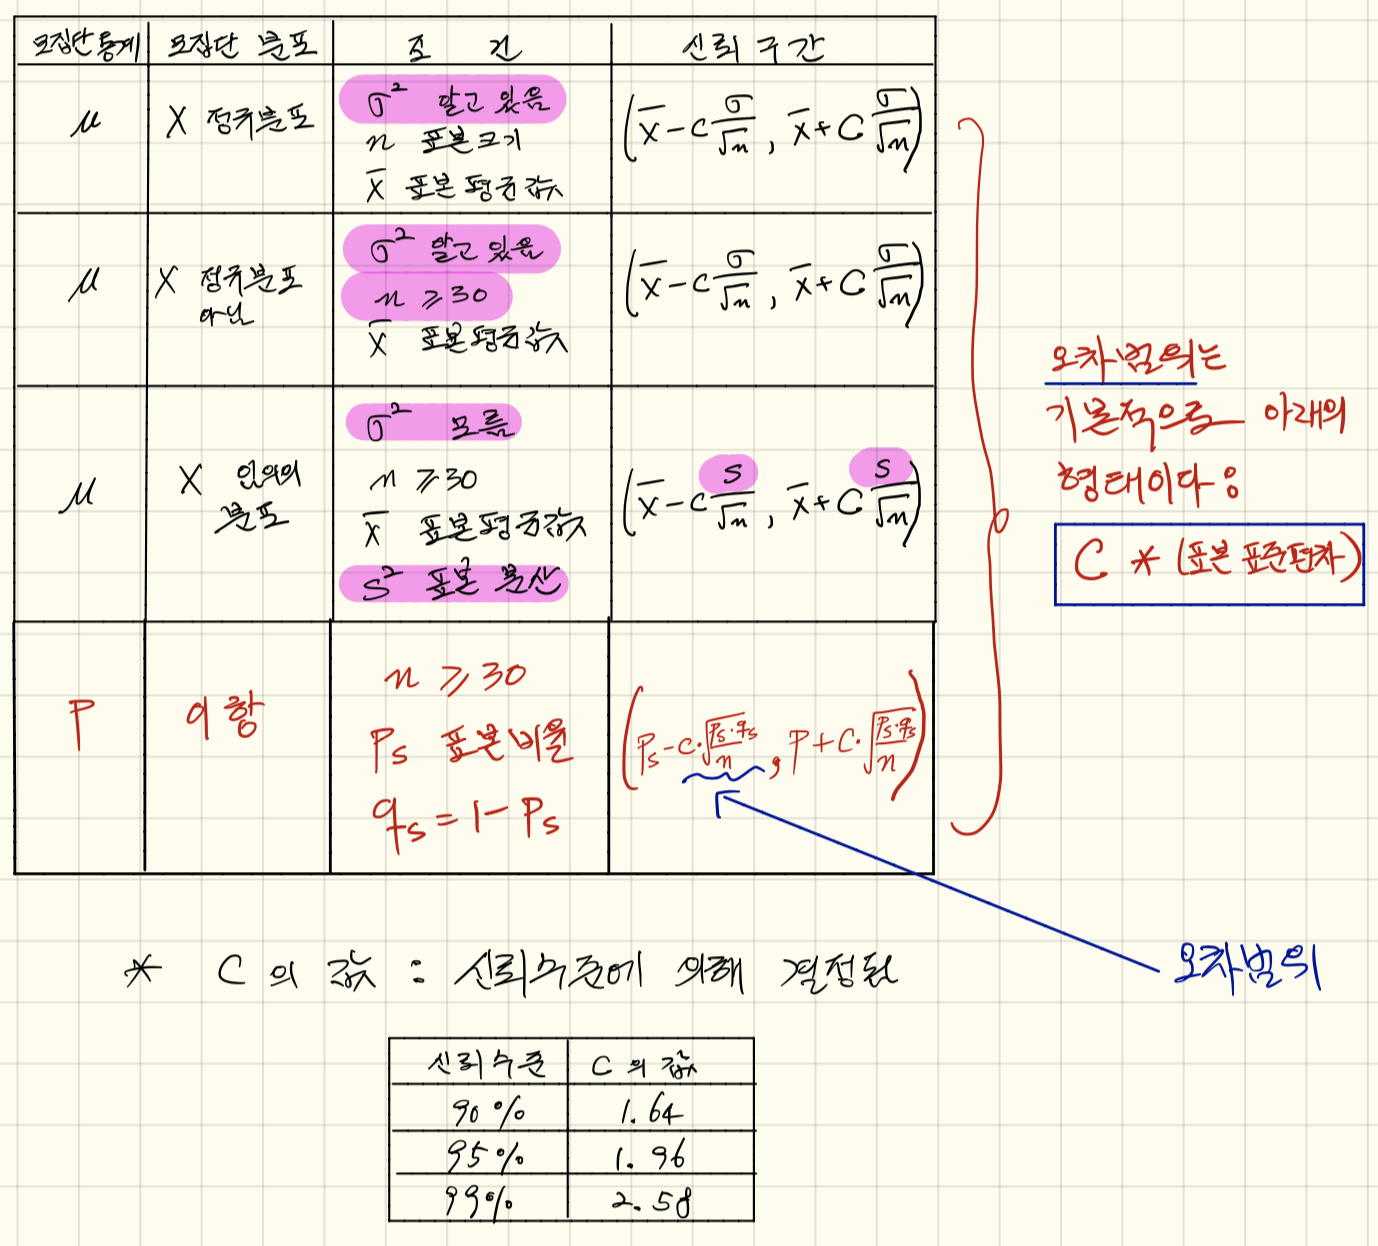 모집단통계 모집단 분포 조 건 신뢰 구간
μ X 정규분포 σ² 알고 있음
n 표본크기
x̄ 표본평균값
(x̄ - c σ/√n, x̄ + c σ/√n)
μ X 정규분포
아님
σ² 알고 있음
n ≥ 30
x̄ 표본평균값
(x̄ - c σ/√n, x̄ + c σ/√n)
μ X 임의의
분포
σ² 모름
n ≥ 30
x̄ 표본평균값
s² 표본 분산
(x̄ - c s/√n, x̄ + c s/√n)
P 이항
n ≥ 30
Ps 표본비율
qs = 1 - Ps
(Ps - c·√(Ps·qs/n), P + c·√(Ps·qs/n))
오차범위는
기본적으로 아래의
형태이다:
C * (표본 표준편차)
오차범위
* C의 값 : 신뢰수준에 의해 결정됨
신뢰수준 C의 값
90% 1.64
95% 1.96
99% 2.58